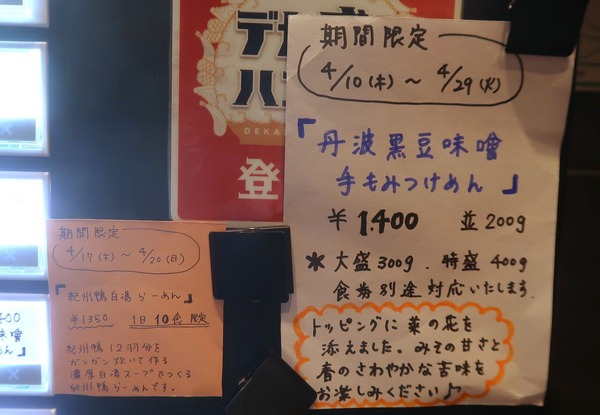 デ
ハ
DEKA
登
期間限定
4/10(木)～4/29(火)
『丹波黒豆味噌
手もみつけめん』
¥1,400 並200g
＊大盛300g、特盛400g
食券別途対応いたします。
トッピングに菜の花を
添えました。みその甘さと
春のさわやかな苦味を
お楽しみください♪
期間限定
4/17(木)～4/20(日)
『紀州鴨白湯らーめん』
¥1350 1日10食限定
紀州鴨12羽分を
ガンガン炊いて作る
濃厚白湯スープでつくる
紀州鴨らーめんです。